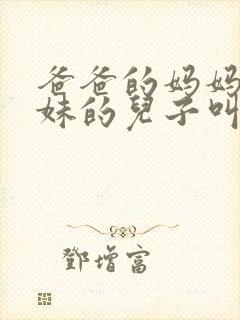 爸爸的妈妈
妹的兒子叫
鄧增富